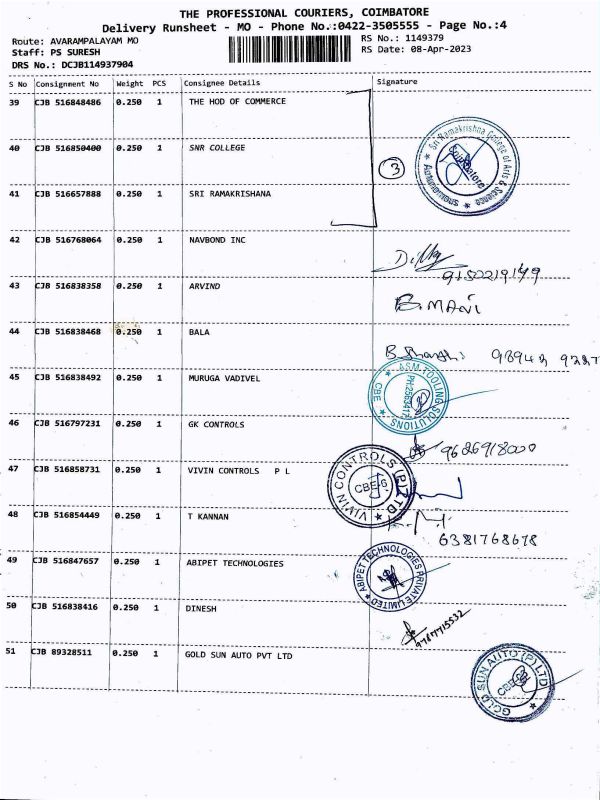 THE PROFESSIONAL COURIERS, COIMBATORE
Delivery Runsheet - MO - Phone No.:0422-3505555 - Page No.:4
Route: AVARAMPALAYAM MO
RS No.: 1149379
Staff: PS SURESH
RS Date: 08-Apr-2023
DRS No.: DCJB114937904
S No Consignment No Weight PCS Consignee Details Signature
39 CJB 516848486 0.250 1 THE HOD OF COMMERCE
40 CJB 516850400 0.250 1 SNR COLLEGE
3
Sri Ramakrishna College of Arts & Science
Coimbatore
41 CJB 516657888 0.250 1 SRI RAMAKRISHANA
42 CJB 516768064 0.250 1 NAVBOND INC
9150219149
43 CJB 516838358 0.250 1 ARVIND
B.MANI
44 CJB 516838468 0.250 1 BALA
45 CJB 516838492 0.250 1 MURUGA VADIVEL
ASM TOOLING SOLUTIONS
CBE
46 CJB 516797231 0.250 1 GK CONTROLS
9626918000
47 CJB 516858731 0.250 1 VIVIN CONTROLS P L
VIVIN CONTROLS (P) LTD
CBE-6
48 CJB 516854449 0.250 1 T KANNAN
6381768678
49 CJB 516847657 0.250 1 ABIPET TECHNOLOGIES
ABIPET TECHNOLOGIES PRIVATE LIMITED
50 CJB 516838416 0.250 1 DINESH
51 CJB 89328511 0.250 1 GOLD SUN AUTO PVT LTD
GOLD SUN AUTO (P) LTD